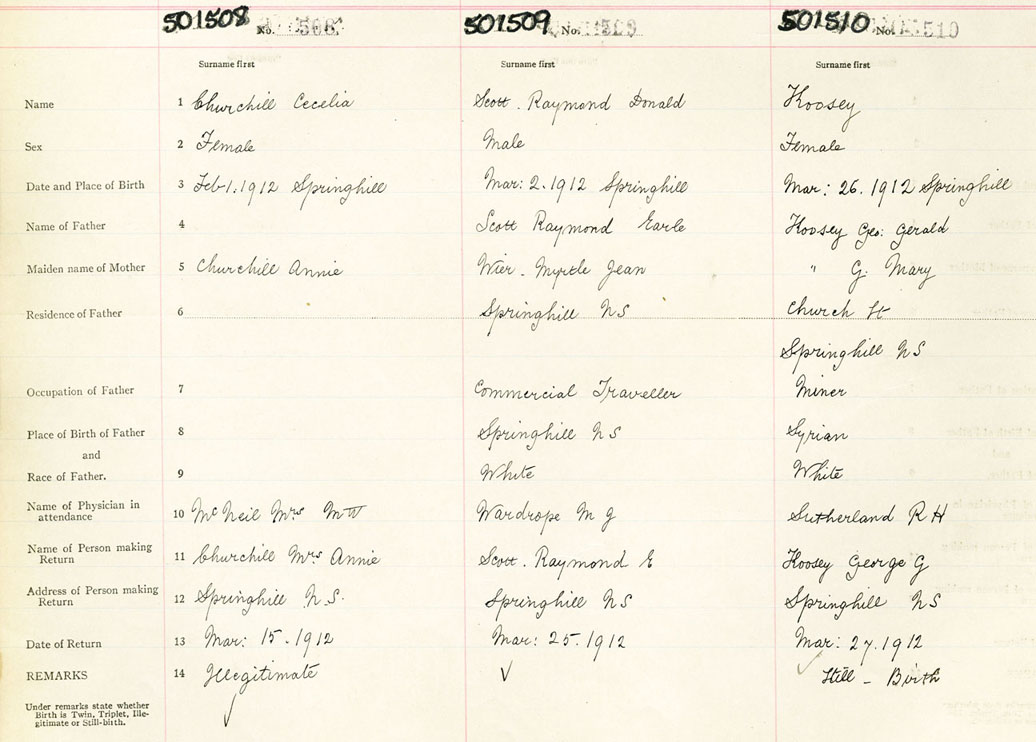 501508 No. 508 501509 No. 501510 No. 510
Surname first Surname first Surname first
Name 1 Churchill Cecelia Scott. Raymond Donald Koosey
Sex 2 Female Male Female
Date and Place of Birth 3 Feb 1. 1912 Springhill Mar: 2. 1912 Springhill Mar: 26. 1912 Springhill
Name of Father 4 Scott Raymond Earle Koosey Geo: Gerald
Maiden name of Mother 5 Churchill Annie Wier - Myrtle Jean " G. Mary
Residence of Father 6 Springhill NS Church St
Springhill NS
Occupation of Father 7 Commercial Traveller Miner
Place of Birth of Father 8 Springhill NS Syrian
and
Race of Father. 9 White White
Name of Physician in
attendance 10 McNeil Mrs Wardrope M G Sutherland R H
Name of Person making
Return 11 Churchill Mrs Annie Scott. Raymond E Koosey George G
Address of Person making
Return 12 Springhill N.S. Springhill NS Springhill NS
Date of Return 13 Mar: 15. 1912 Mar: 25. 1912 Mar: 27. 1912
REMARKS 14 Illegitimate Still - Birth
Under remarks state whether
Birth is Twin, Triplet, Ille-
gitimate or Still-birth.